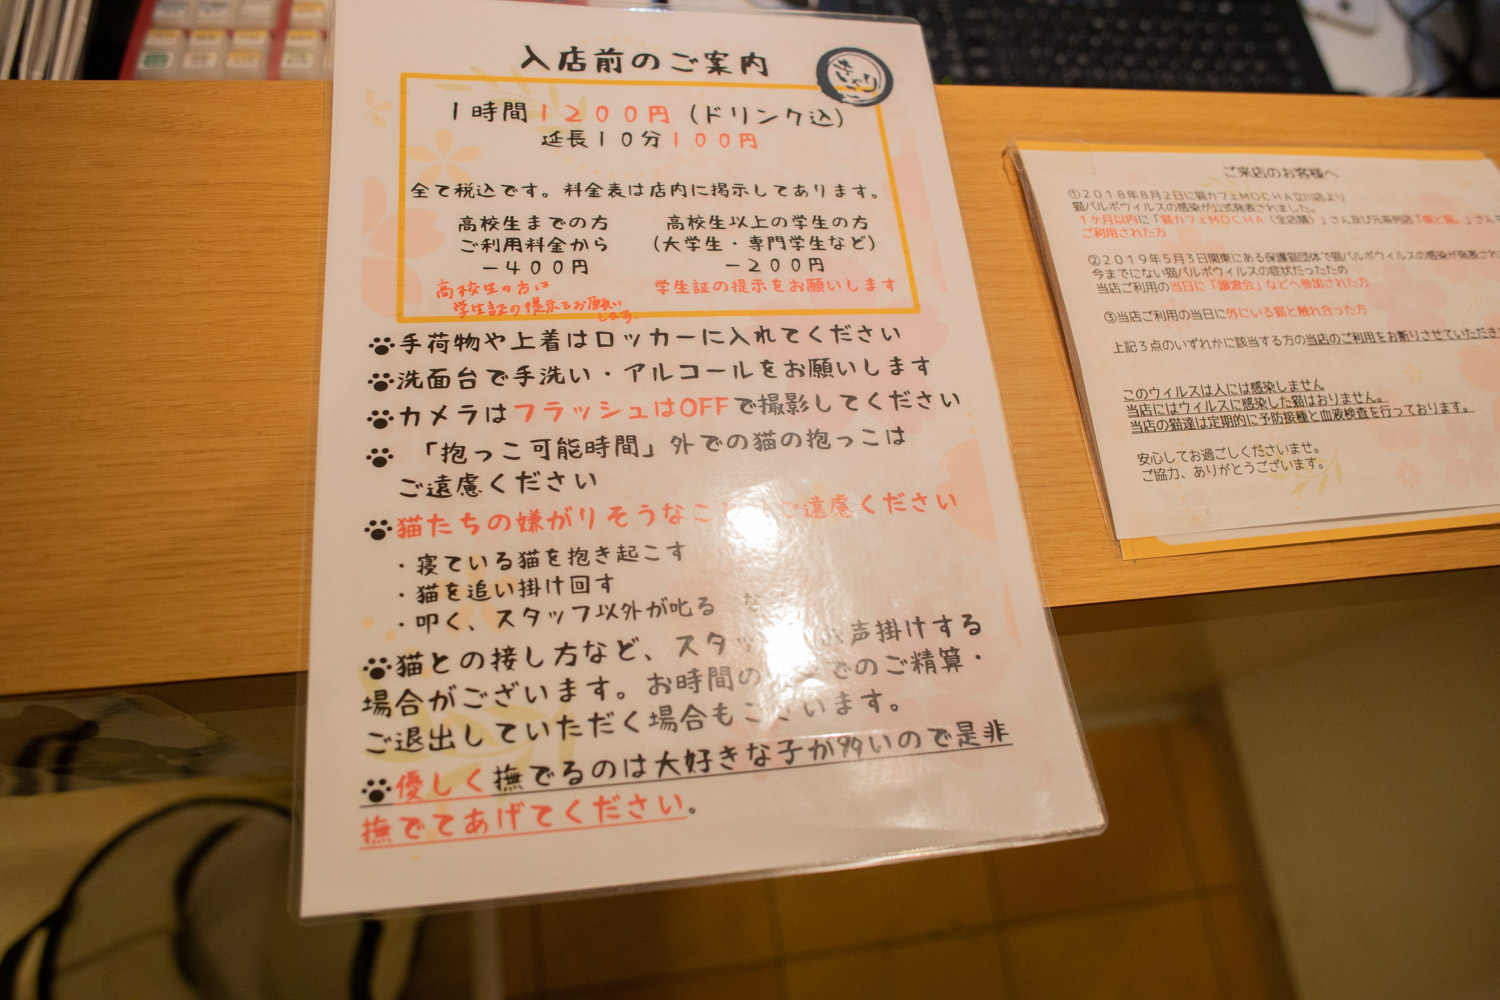 入店前のご案内
１時間１２００円（ドリンク込）
延長１０分１００円
全て税込です。料金表は店内に掲示してあります。
高校生までの方
ご利用料金から
－４００円
高校生の方は
学生証の提示をお願い
します。
高校生以上の学生の方
（大学生・専門学生など）
－２００円
学生証の提示をお願いします
手荷物や上着はロッカーに入れてください
洗面台で手洗い・アルコールをお願いします
カメラはフラッシュはOFFで撮影してください
「抱っこ可能時間」外での猫の抱っこは
ご遠慮ください
猫たちの嫌がりそうなこ ご遠慮ください
・寝ている猫を抱き起こす
・猫を追い掛け回す
・叩く、スタッフ以外が叱る
猫との接し方など、スタッ 声掛けする
場合がございます。お時間の でのご精算・
ご退出していただく場合もございます。
優しく撫でるのは大好きな子が多いので是非
撫でてあげてください。
ご来店のお客様へ
①２０１８年８月２日に猫カフェＭＯＣＨＡ立川店より
猫パルボウィルスの感染が公式発表されました。
１ヶ月以内に「猫カフェＭＯＣＨＡ（全店舗）」さん及び元系列店
ご利用された方
②２０１９年５月３日関東にある保護猫団体で猫パルボウィルスの感染が発表され
今までにない猫パルボウィルスの症状だったため
当店ご利用の当日に「譲渡会」などへ参加された方
③当店ご利用の当日に外にいる猫と触れ合った方
上記３点のいずれかに該当する方の当店のご利用をお断りさせていただき
このウィルスは人には感染しません
当店にはウィルスに感染した猫はおりません。
当店の猫達は定期的に予防接種と血液検査を行っております。
安心してお過ごしくださいませ。
ご協力、ありがとうございます。